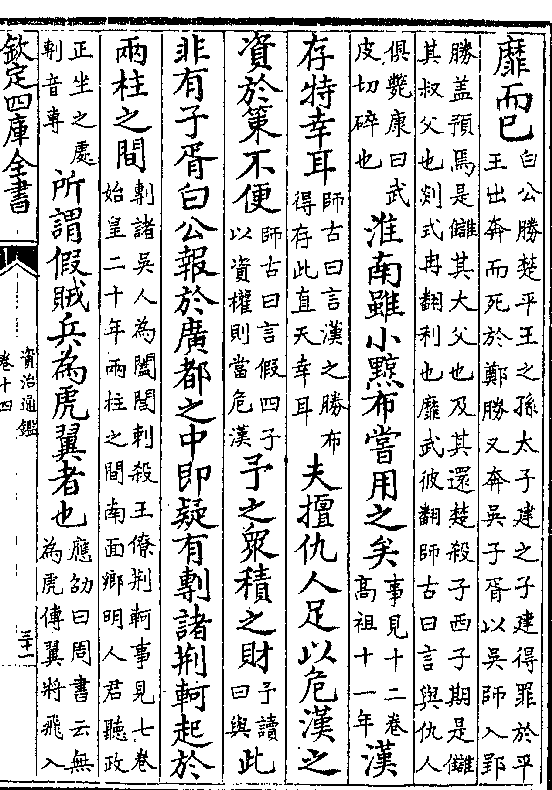 靡而已白公勝楚平王之孫太子建之子建得罪於平王出奔而死於鄭勝又奔吳子胥以吳師入郢
勝蓋預焉是讎其大父也及其還楚殺子西子期是讎其叔父也剡式冉翻利也靡武彼翻師古曰言與仇人
俱斃康曰武皮切碎也淮南雖小黥布嘗用之矣事見十二卷高祖十一年漢
存特幸耳師古曰言漢之勝布得存此直天幸耳夫擅仇人足以危漢之
資於策不便師古曰言假四子以資權則當危漢予之衆積之財予讀曰與此
非有子胥白公報於廣都之中即疑有剸諸荆軻起於
兩柱之間剸諸吳人為闔閭刺殺王僚荆軻事見七卷始皇二十年兩柱之間南面鄉明人君聽政
正坐之處剸音專所謂假賊兵為虎翼者也應劭曰周書云無為虎傅翼將飛入
欽定四庫全書
資治通鑑
卷十四